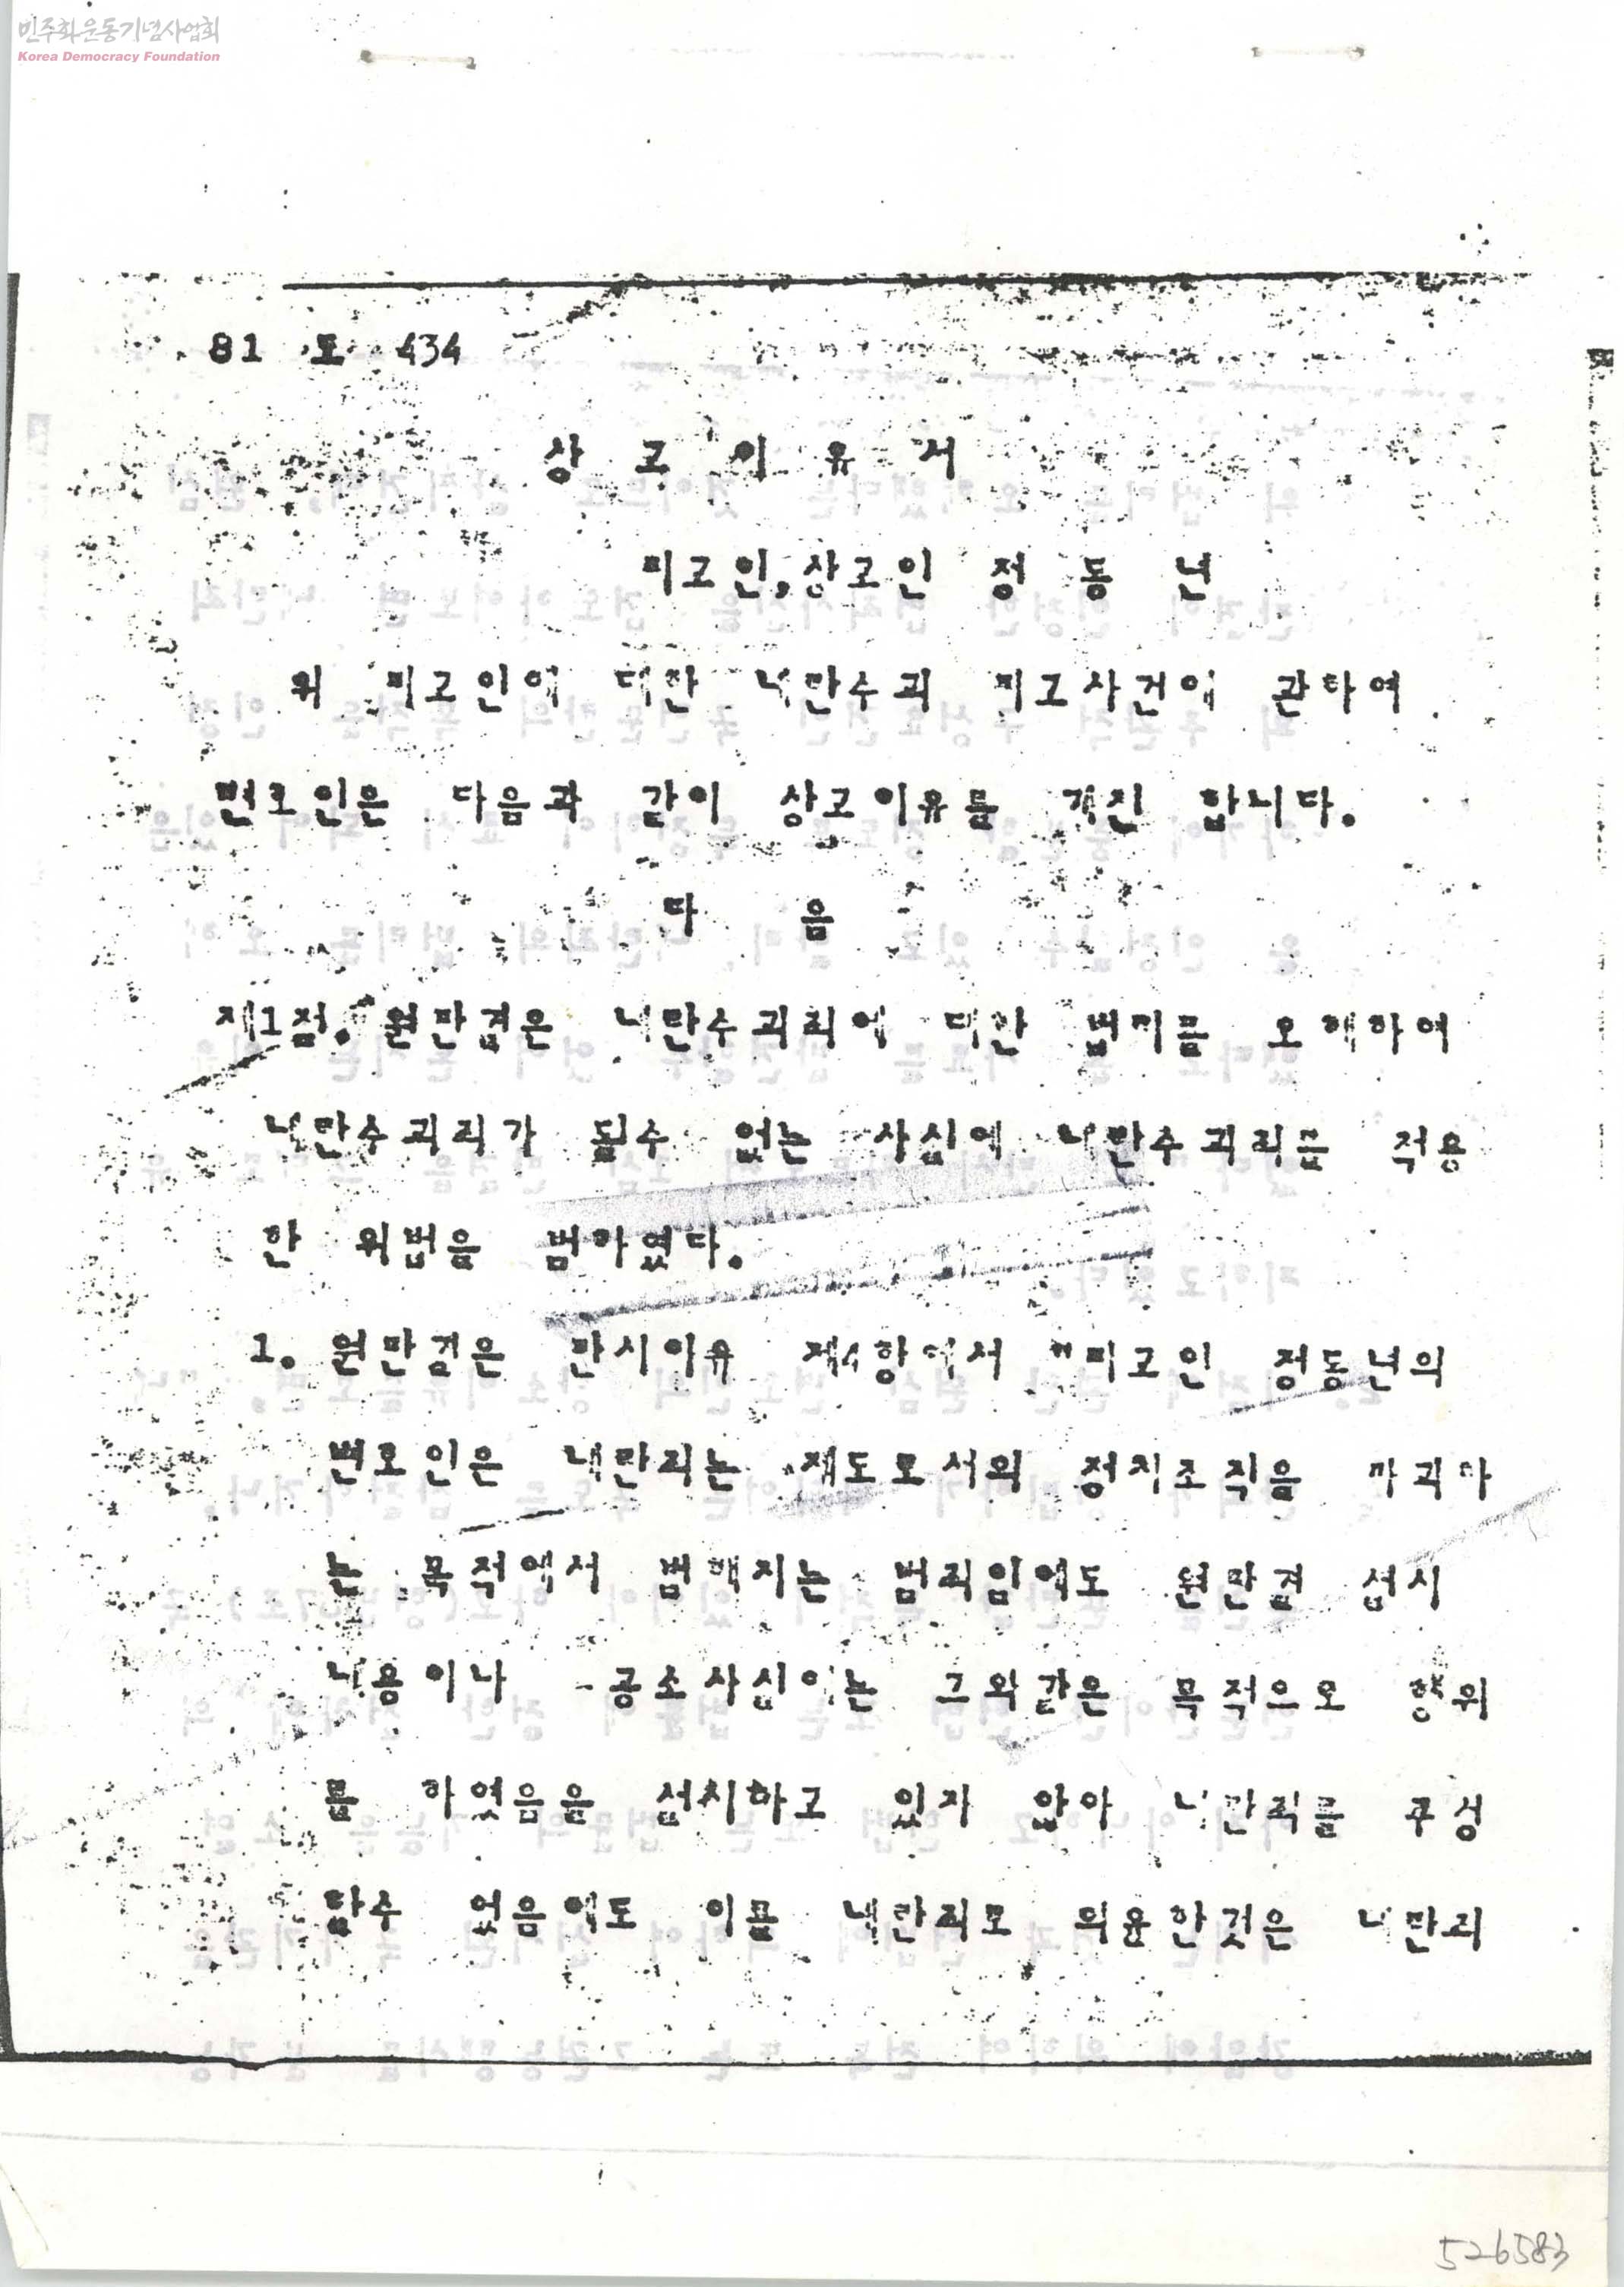 민주화운동기념사업회
Korea Democracy Foundation
81 도 434
상 고 이 유 서
피고인,상고인 정 동 년
위 피고인에 대한 내란수괴 피고사건에 관하여
변호인은 다음과 같이 상고이유를 개진 합니다.
다 음
제1점. 원판결은 내란수괴죄에 대한 법리를 오해하여
내란수괴죄가 될수 없는 사실에 내란수괴죄를 적용
한 위법을 범하였다.
1. 원판결은 판시이유 제4항에서 "피고인 정동년의
변호인은 내란죄는 제도로서의 정치조직을 파괴하
는 목적에서 범해지는 범죄임에도 원판결 설시
내용이나 공소사실에는 그와같은 목적으로 행위
를 하였음을 설시하고 있지 않아 내란죄를 구성
할수 없음에도 이를 내란죄로 의율한것은 내란죄
526583